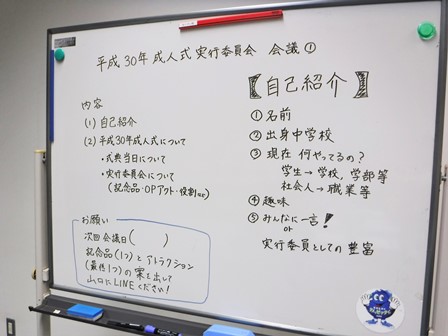 平成30年 成人式 実行委員会 会議①
内容
(1) 自己紹介
(2) 平成30年成人式について
・式典当日について
・実行委員会について
(記念品・OPアクト・役割など)
お願い
次回会議日(　　)
記念品(1つ)とアトラクション
(最低1つ)の案を出して
山口にLINEください!
【自己紹介】
① 名前
② 出身中学校
③ 現在 何やってるの?
学生→学校,学部等
社会人→職業等
④ 趣味
⑤ みんなに一言!
or
実行委員としての